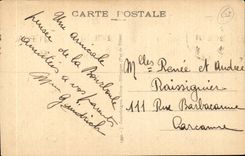 CARTE POSTALE
Une amicale
pensée de la Bourboule
amitiés à vos parents
M^lles Renée et André
Raissiguier
111 Rue Barbacanne
Carcassonne